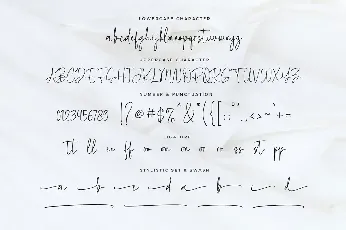 LOWERCASE CHARACTER
abcdefghijklmnopqrstuvwxyz
UPPERCASE CHARACTER
ABCDEFGHIJKLMNOPQRSTUVWXYZ
NUMBER & PUNCTUATION
0123456789 !?@#$%^&*({[:;"",.<>~+-
LIGATURE
th ll
STYLISTIC SET & SWASH
a b c d a b c d